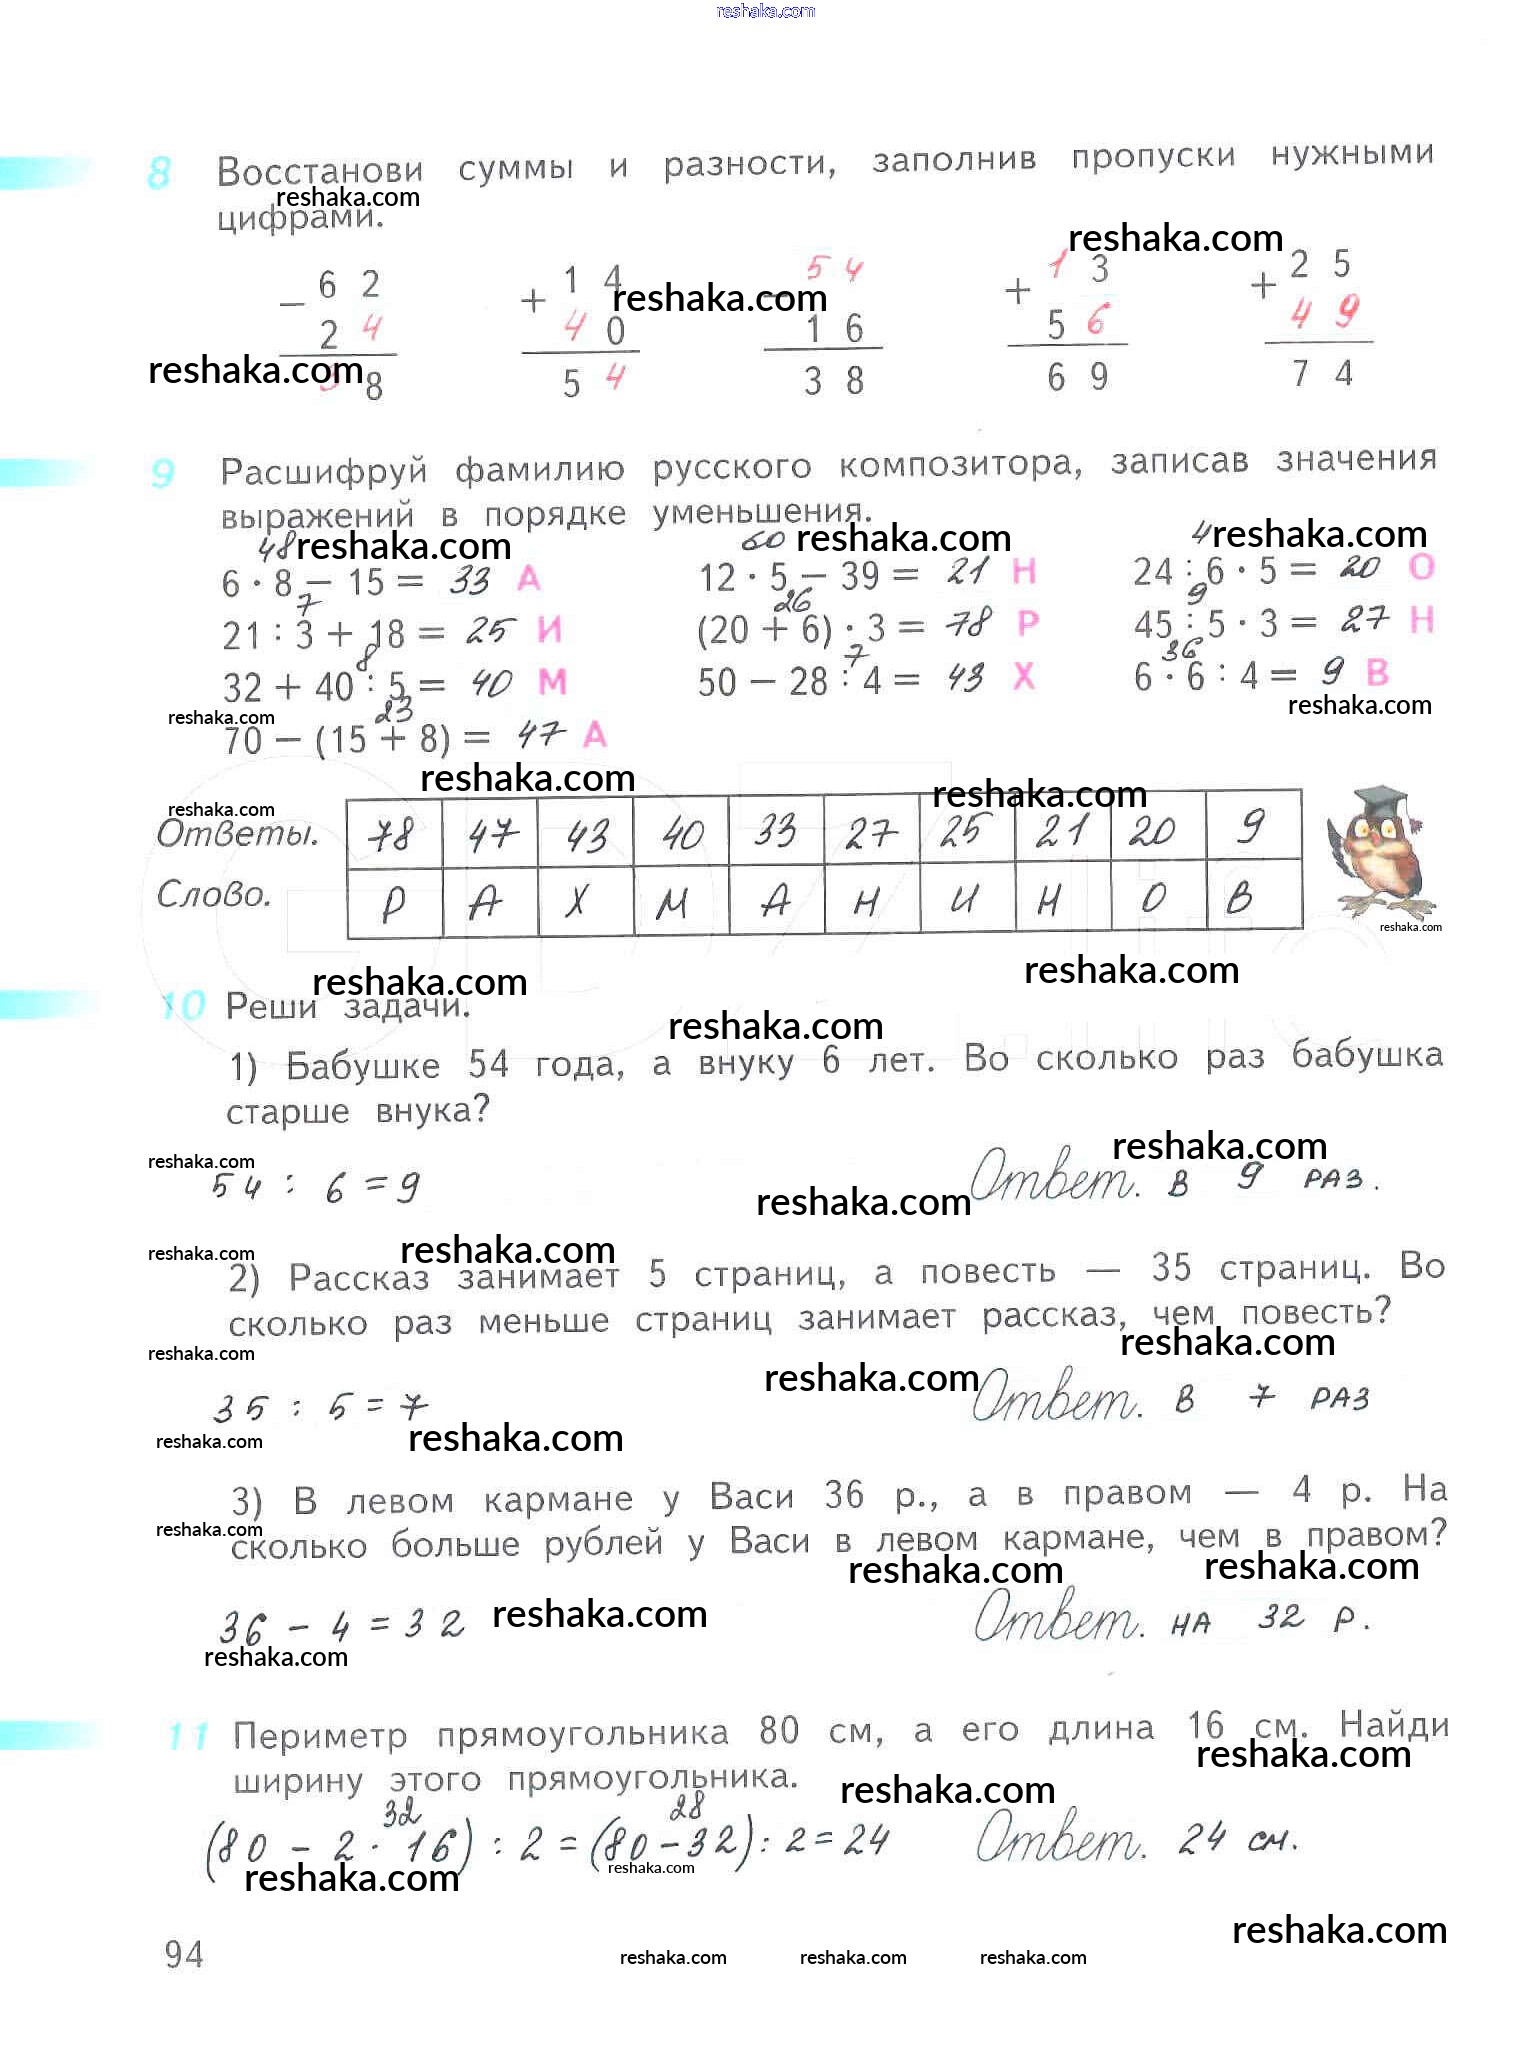 reshaka.com
8 Восстанови суммы и разности, заполнив пропуски нужными
reshaka.com
цифрами.
reshaka.com
62 14 54 13 25
− + reshaka.com − + +
24 40 16 56 49
reshaka.com
38 54 38 69 74
9 Расшифруй фамилию русского композитора, записав значения
выражений в порядке уменьшения.
48 reshaka.com 60 reshaka.com 4 reshaka.com
6 · 8 − 15 = 33 А 12 · 5 − 39 = 21 Н 24 : 6 · 5 = 20 О
7 26 9
21 : 3 + 18 = 25 И (20 + 6) · 3 = 78 Р 45 : 5 · 3 = 27 Н
8 7 36
32 + 40 : 5 = 40 М 50 − 28 : 4 = 43 Х 6 · 6 : 4 = 9 В
reshaka.com 23 reshaka.com
70 − (15 + 8) = 47 А
reshaka.com
reshaka.com reshaka.com
Ответы. 78 47 43 40 33 27 25 21 20 9
Слово. Р А Х М А Н И Н О В
reshaka.com
reshaka.com reshaka.com
10 Реши задачи.
reshaka.com
1) Бабушке 54 года, а внуку 6 лет. Во сколько раз бабушка
старше внука?
reshaka.com reshaka.com
54 : 6 = 9 reshaka.com Ответ. в 9 раз.
reshaka.com reshaka.com
2) Рассказ занимает 5 страниц, а повесть — 35 страниц. Во
сколько раз меньше страниц занимает рассказ, чем повесть?
reshaka.com reshaka.com
35 : 5 = 7 reshaka.com Ответ. в 7 раз
reshaka.com reshaka.com
3) В левом кармане у Васи 36 р., а в правом — 4 р. На
reshaka.com
сколько больше рублей у Васи в левом кармане, чем в правом?
reshaka.com reshaka.com
36 − 4 = 32 reshaka.com Ответ. на 32 р.
reshaka.com
11 Периметр прямоугольника 80 см, а его длина 16 см. Найди
reshaka.com
ширину этого прямоугольника.
reshaka.com
32 28
(80 − 2 · 16) : 2 = (80 − 32) : 2 = 24 Ответ. 24 см.
reshaka.com reshaka.com
reshaka.com
94 reshaka.com reshaka.com reshaka.com